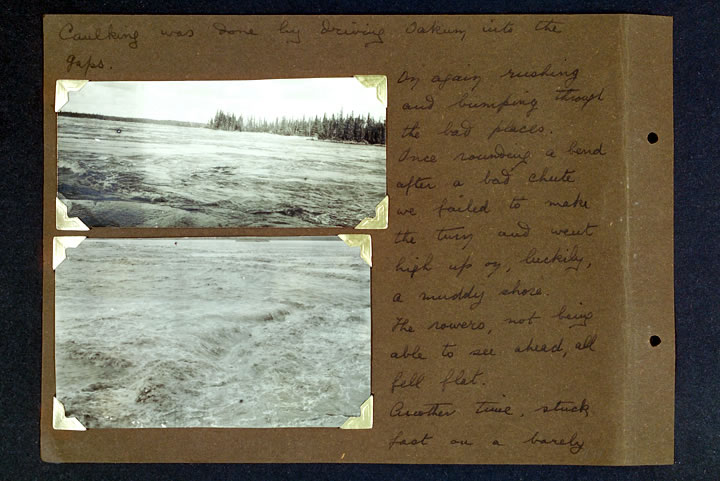 Caulking was done by driving Oakum into the
gaps.
On again rushing
and bumping through
the bad places.
Once rounding a bend
after a bad chute
we failed to make
the turn and went
high up on, luckily,
a muddy shore.
The rowers, not being
able to see ahead, all
fell flat.
Another time, stuck
fast on a barely